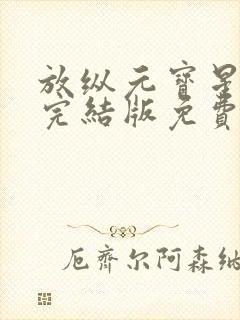 放纵元寶星
完結版免費
厄齊尔阿森納